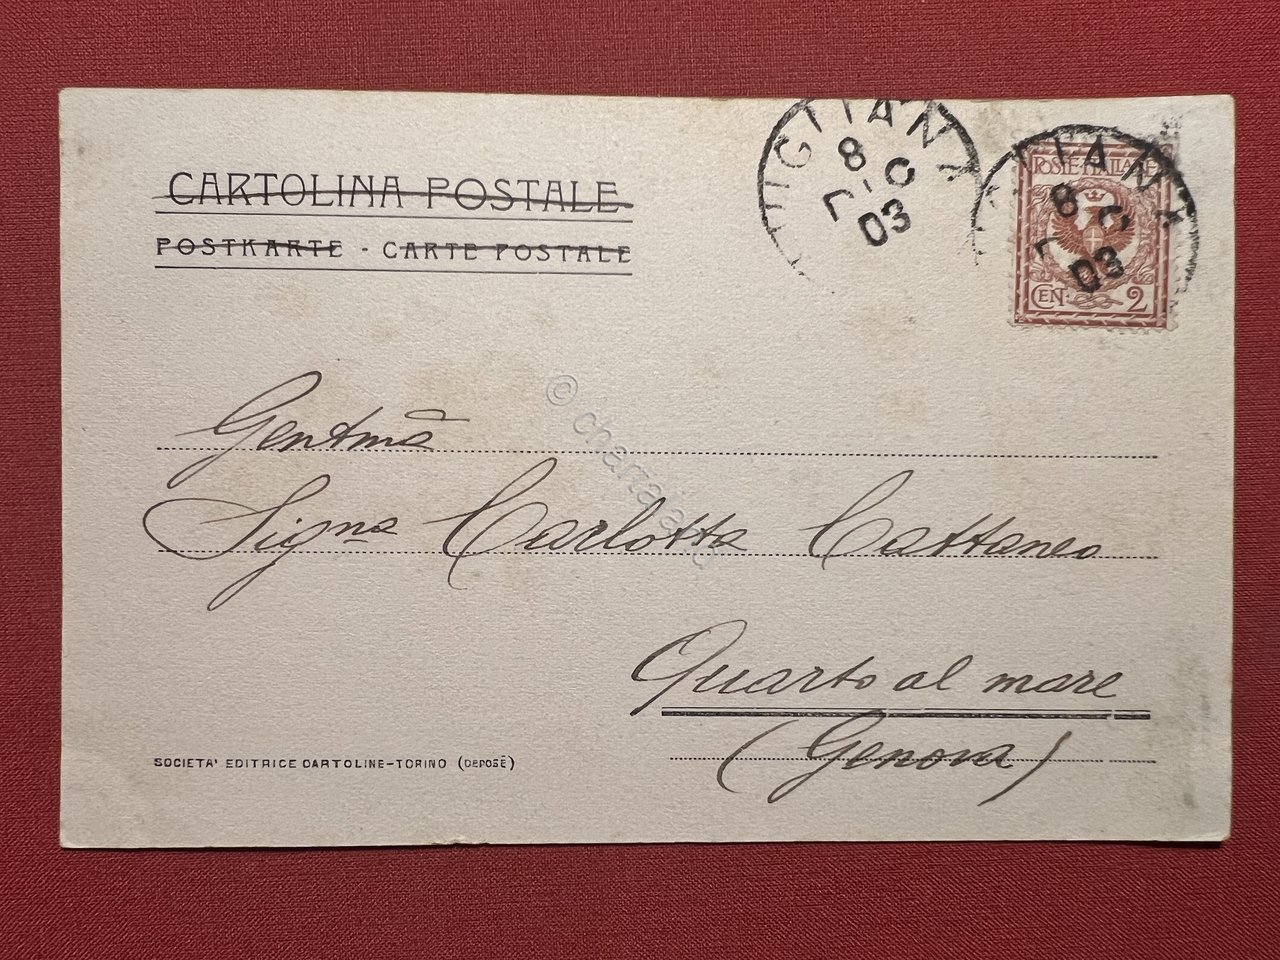 CARTOLINA POSTALE
POSTKARTE - CARTE POSTALE
8
03
POSTE ITALIANE
8
03
CEN. 2
Gentma
Signa Carlotta Cattaneo
Quarto al mare
(Genova)
SOCIETA' EDITRICE CARTOLINE-TORINO (DEPOSÉ)